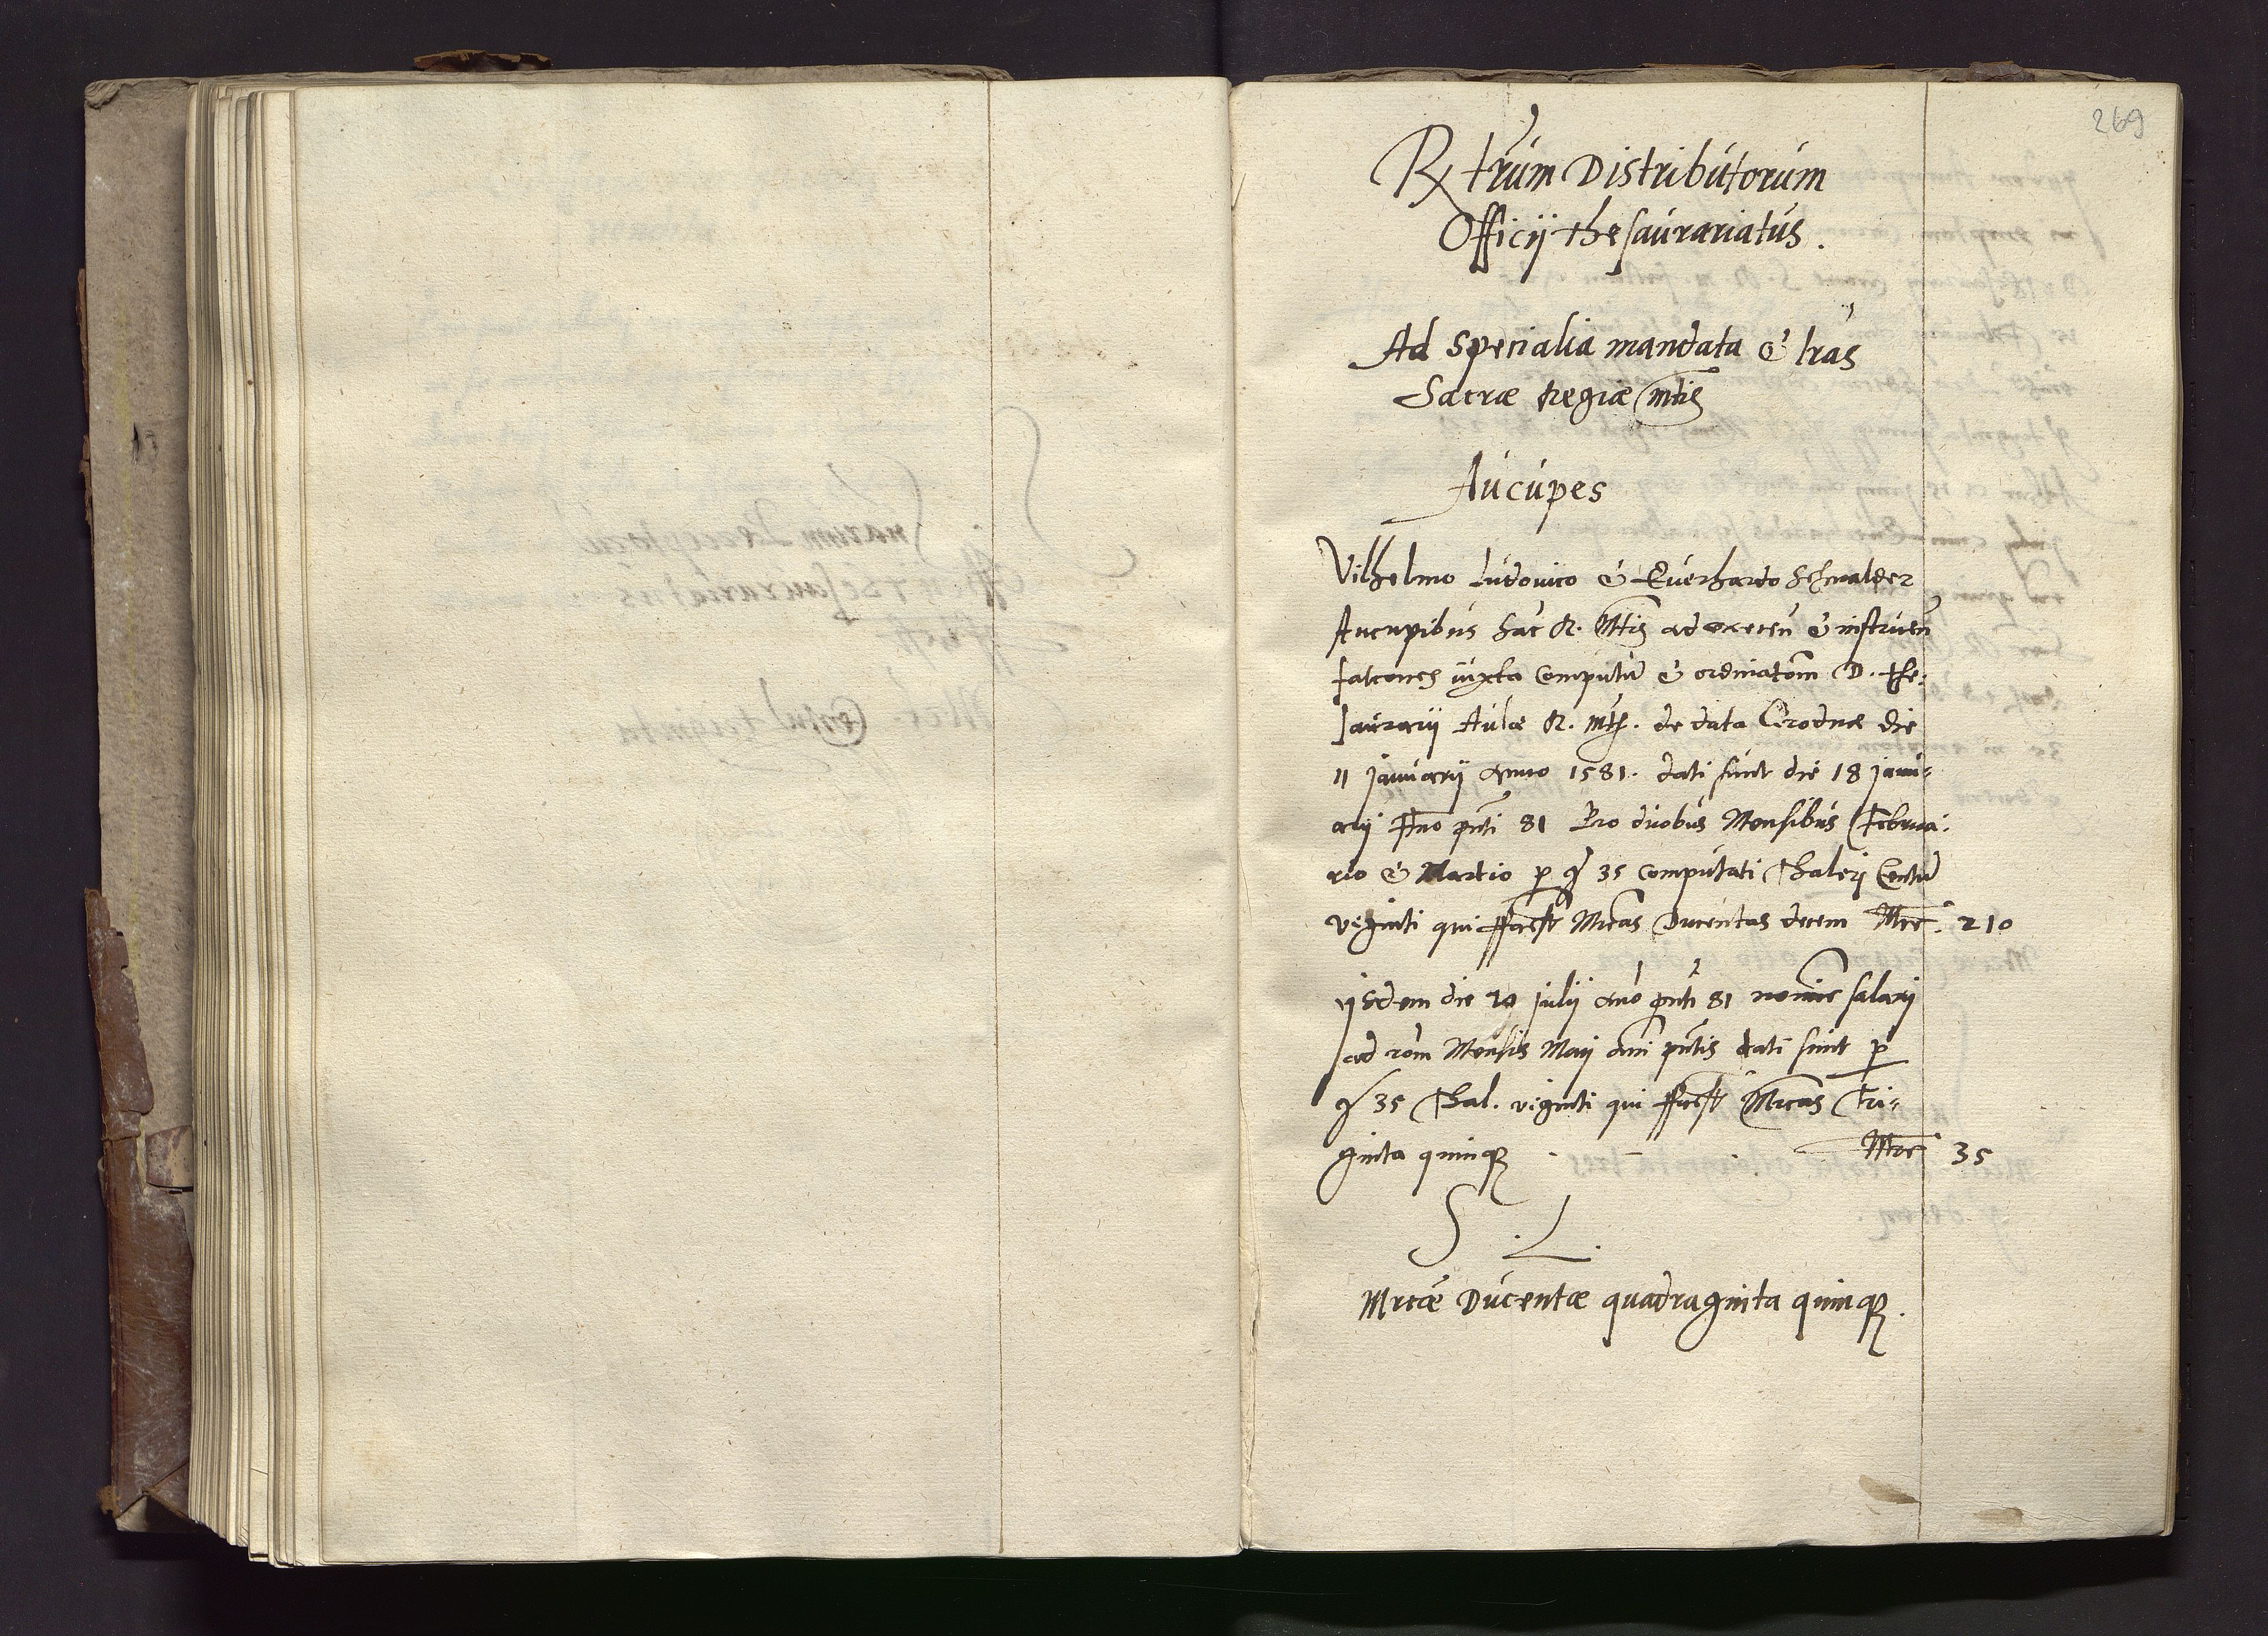 269
Rtrum Distributorum
Officij thesaurariatus.
Ad specialia mandata & lras
Sacræ Regiæ Mtis
Aucupes
Vilhelmo Ludovico & Everhardo Schmalher
Aucupibus Sac R. Mtis ad exercen & instruen
falcones iuxta computum & ordinatom D. The-
saurarij Aulæ R. Mtis. de data Grodnæ die
11 januarij anno 1581. dati sunt die 18 janu-
arij Ano pnti 81 Pro duobus Mensibus Februa-
rio & Martio p gr 35 computati Thaleri Centum
viginti qui ffaciunt Mrcas Ducentas decem Mrc. 210
ijsdem die 29 julij ano pnti 81 nomine salarij
ad rom Mensis Maij ani pntis dati sunt p
gr 35 Thal. viginti qui ffaciunt Mrcas Tri-
ginta quinq Mrc 35
S. L.
Mrcæ Ducentæ quadraginta quinq.